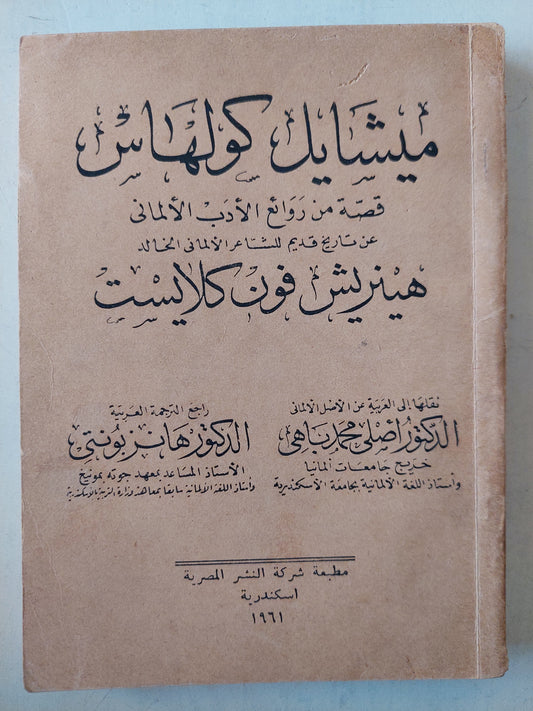 ميشايل كولهاس
قصة من روائع الأدب الألماني
عن تاريخ قديم للشاعر الألماني الخالد
هينريش فون كلايست
نقلها إلى العربية عن الأصل الألماني
الدكتور أصلى محمد باهى
خريج جامعات ألمانيا
وأستاذ اللغة الألمانية بجامعة الأسكندرية
راجع الترجمة العربية
الدكتور هانز بونتى
الأستاذ المساعد بمعهد جوته بميونيخ
وأستاذ اللغة الألمانية سابقا بمعاهد وزارة التربية بالاسكندرية
مطبعة شركة النشر المصرية
اسكندرية
١٩٦١